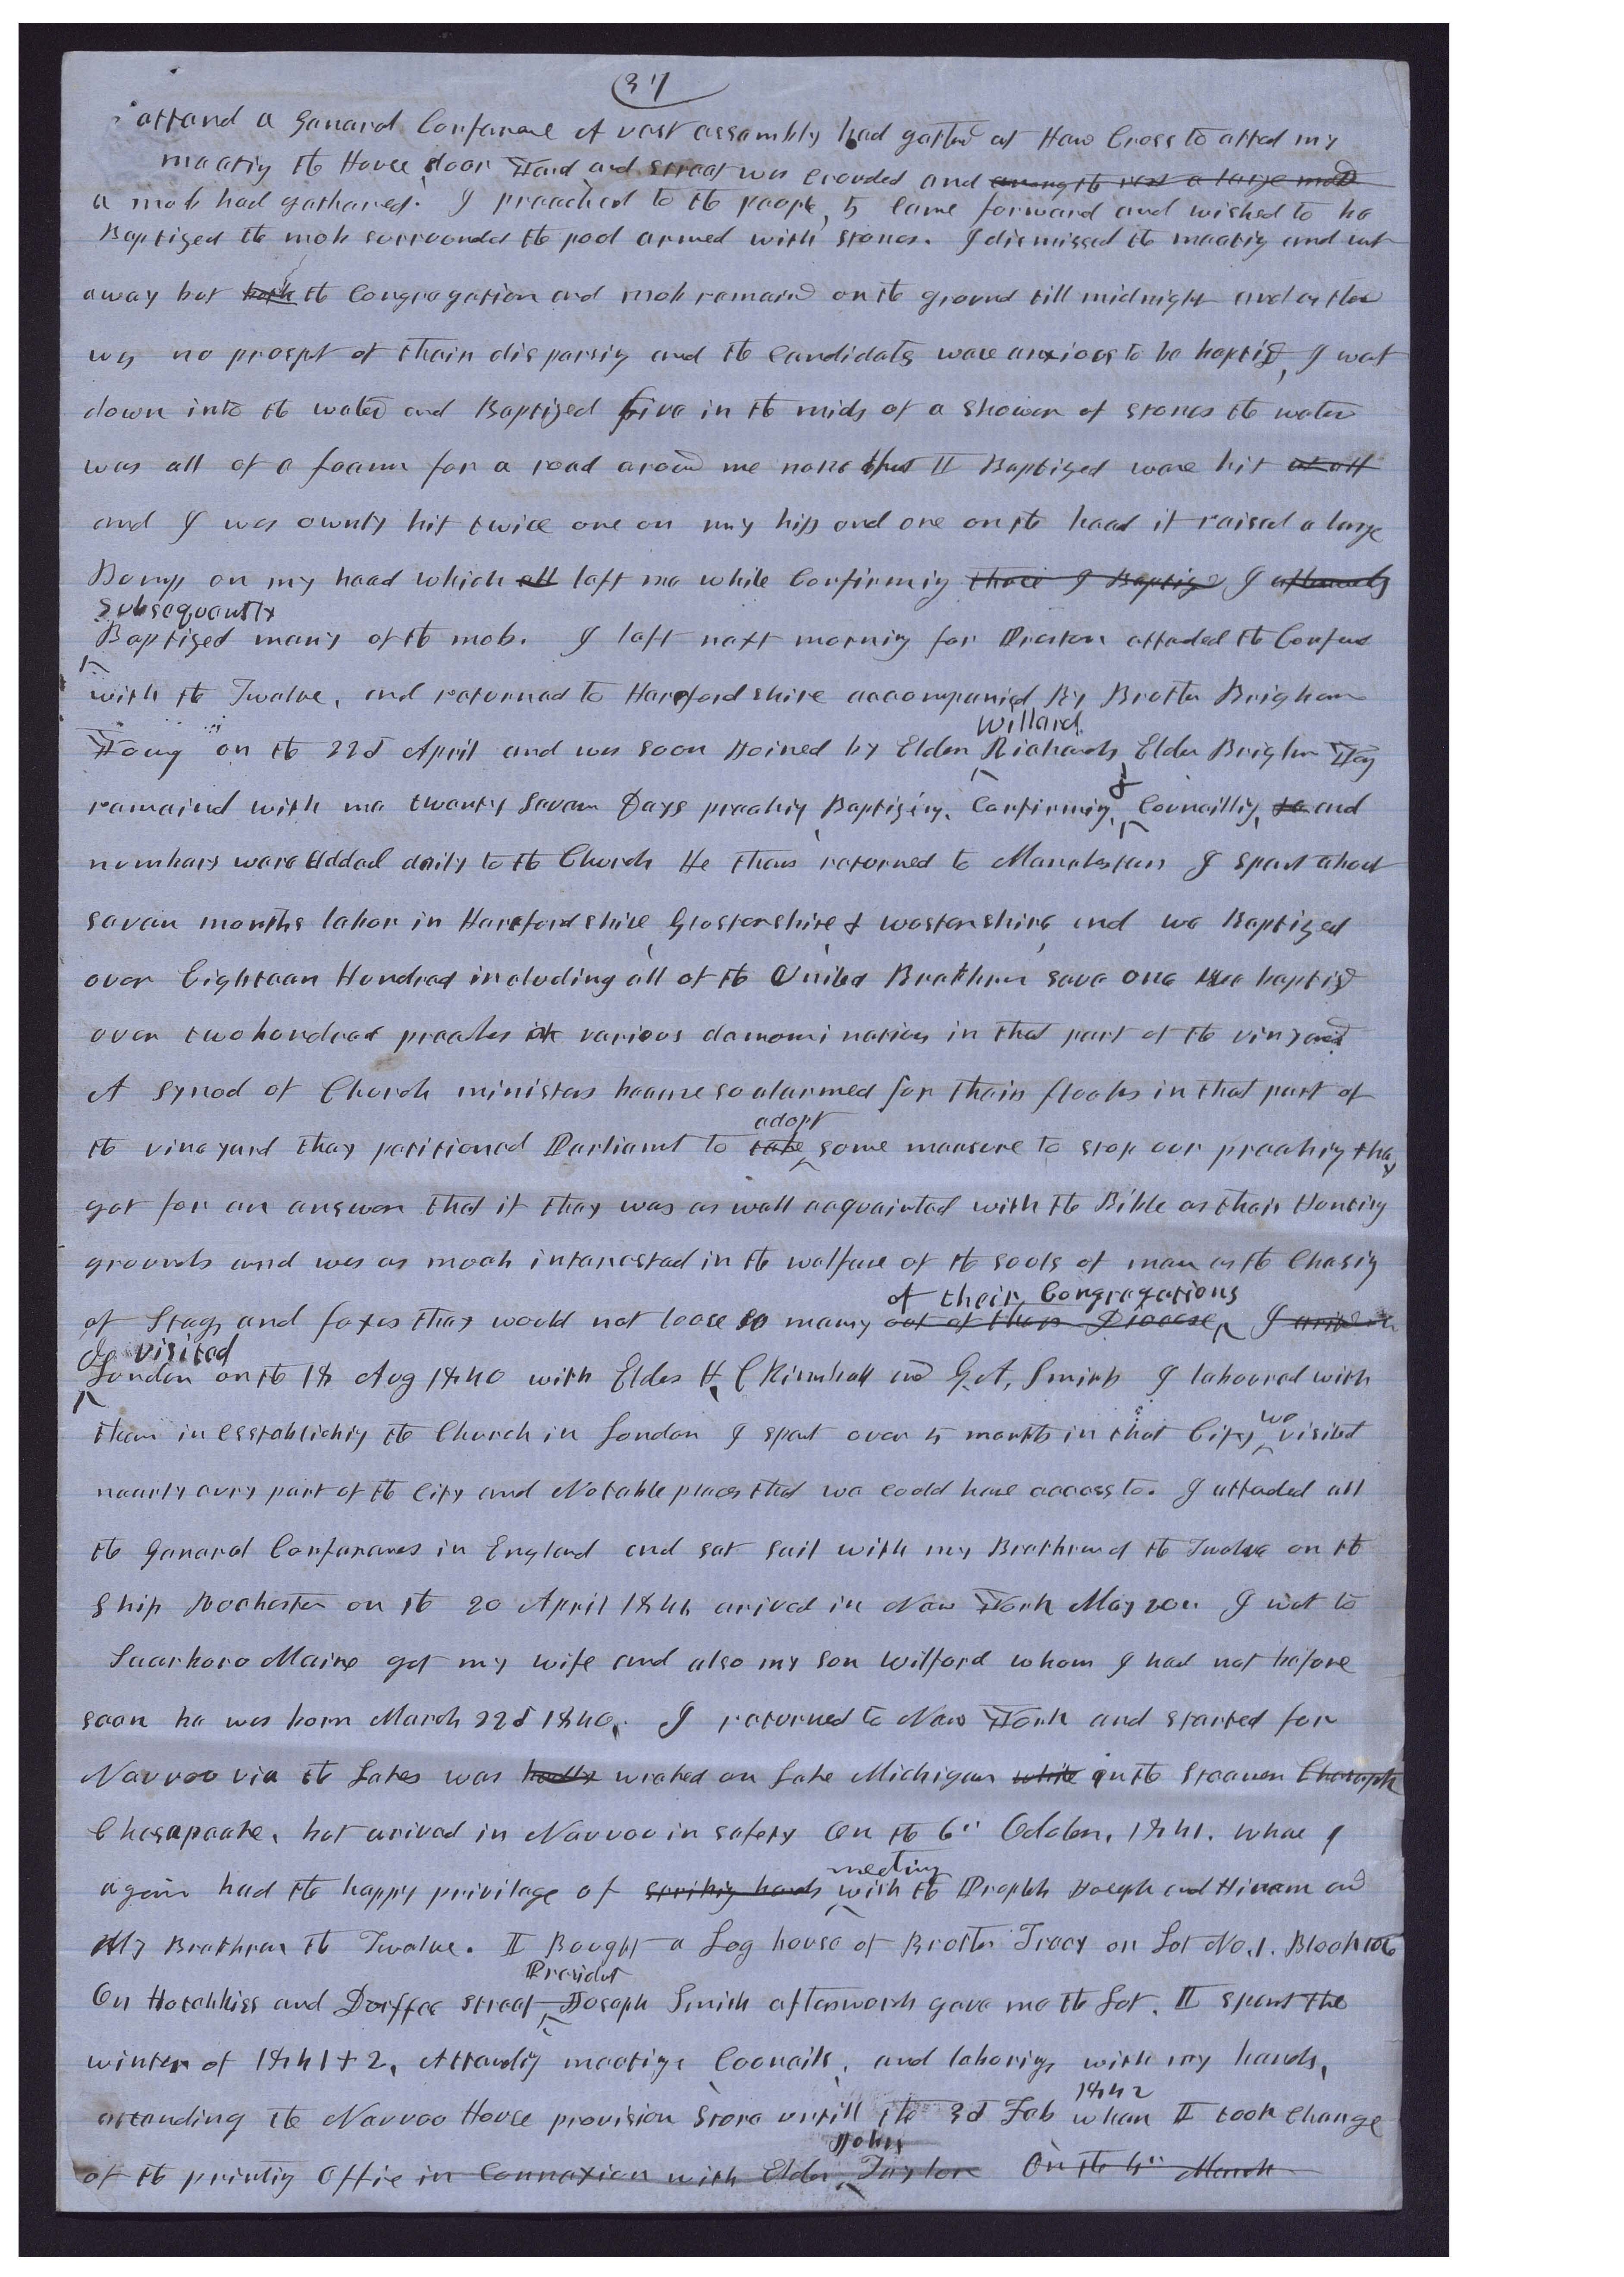 37
attend a General Conference A vast assembly had gatherd at Haw Cross to attend my
meeting the House, door Yard and street was crouded and among the rest a large mob
a mob had gathered. I preached to the people, 5 came forward and wished to be
Baptized the mob surrounded the pool armed with stones. I dismissed the meeting and went
away but both the Congregation and mob remaind on the ground till midnight and as there
was no prospet of their dispersing and the Candidates ware anxious to be baptizd, I went
down into the water and Baptized five in the mids of a shower of stones the water
was all of a foam for a road around me none that I Baptized ware hit at all
and I was ownly hit twice one on my hip and one on the head it raised a large
Bump on my head which all left me while Confirming those I Baptizd I afterwards
Subsequently
Baptized many of the mob. I left next morning for Preston attended the Confrence
with the Twelve, and returned to Harefordshire accompanied By Brother Brigham
Willard
Young on the 22d April and was soon Joined by Elder Richards, Elder Brigham Young
&
remaind with me twenty seven Days preaching, Baptizing, Confirming, Councilling, to and
numbers ware Added daily to the Church He then returned to Manchester I spent about
seven months labor in Harefordshire, Glostershire & Wostershire, and we Baptized
over Eighteen Hundred including all of the United Brethren save one we baptizd
over two hundred preachers of various denominations in that part of the vinyard
A Synod of Church ministers became so alarmed for their flocks in that part of
adopt
the vineyard they petitioned Parliament to take some measure to stop our preaching they
got for an answer that if they was as well acquainted with the Bible as their Hunting
grounds and was as much interested in the welfare of the souls of men as the Chasing
of their Congregations
of Stags and foxes they would not loose so many out of their Diocese, I arived in
I visited
London on the 18 Aug 1840 with Elders H. C Kimball and G. A. Smith I laboured with
we
them in establishing the Church in London I spent over 5 months in that City visited
nearly evry part of the City and Notable places that we could have access to. I attended all
the General Conferances in England and set sail with my Brethren of the Twelve on the
Ship Rochester on the 20 April 1841 arived in New York May 20" I went to
Scarboro Maine got my wife and also my son Wilford whom I had not before
seen he was born March 22d 1840. I returned to New York and started for
Nauvoo via the Lakes was hadly wrecked on Lake Michigan while on the Steamer Chesapeake
Chesapeake, but arived in Nauvoo in safety On the 6" October, 1841. Whare I
meeting
again had the happy privilege of striking hands with the Prophets Joseph and Hiram and
My Brethren the Twelve. I Bought a Log house of Brother Tracy on Lot No. 1. Block 106
President
On Hotchkiss and Durffee street Joseph Smith afterwords gave me the Lot. I spent the
winter of 1841 & 2, Attending meetings, Councils, and laboring with my hands,
1842
attending the Nauvoo House provision Store untill the 3d Feb when I took Charge
John
of the printing Office in Connexion with Elder Taylor On the 4" March